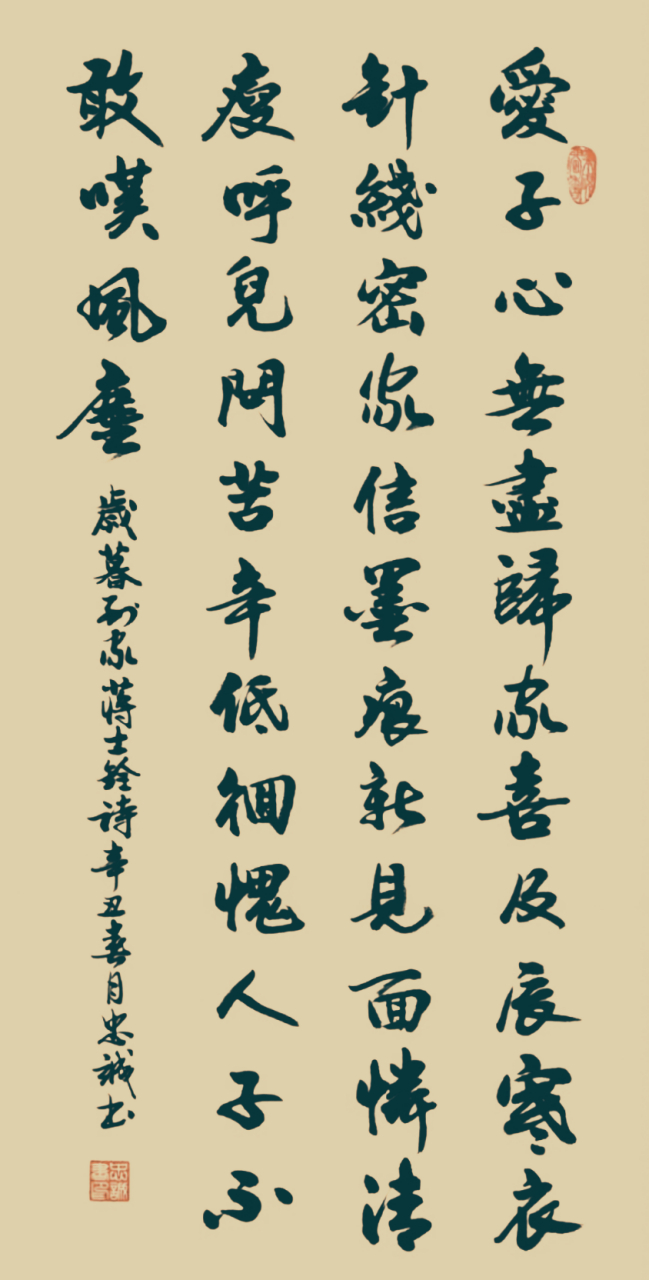 愛子心無盡歸家喜及辰寒衣
針綫密家信墨痕新見面憐清
瘦呼兒問苦辛低徊愧人子不
敢嘆風塵
歲暮到家蔣士銓詩辛丑春月忠誠書
忠誠書印